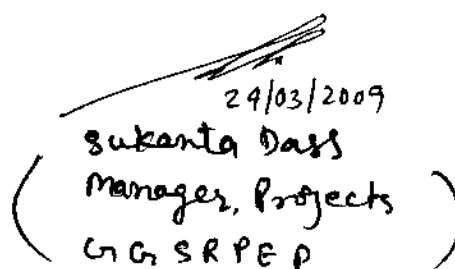 24/03/2009
Sukanta Dass
Manager, Projects
GGSRPEP